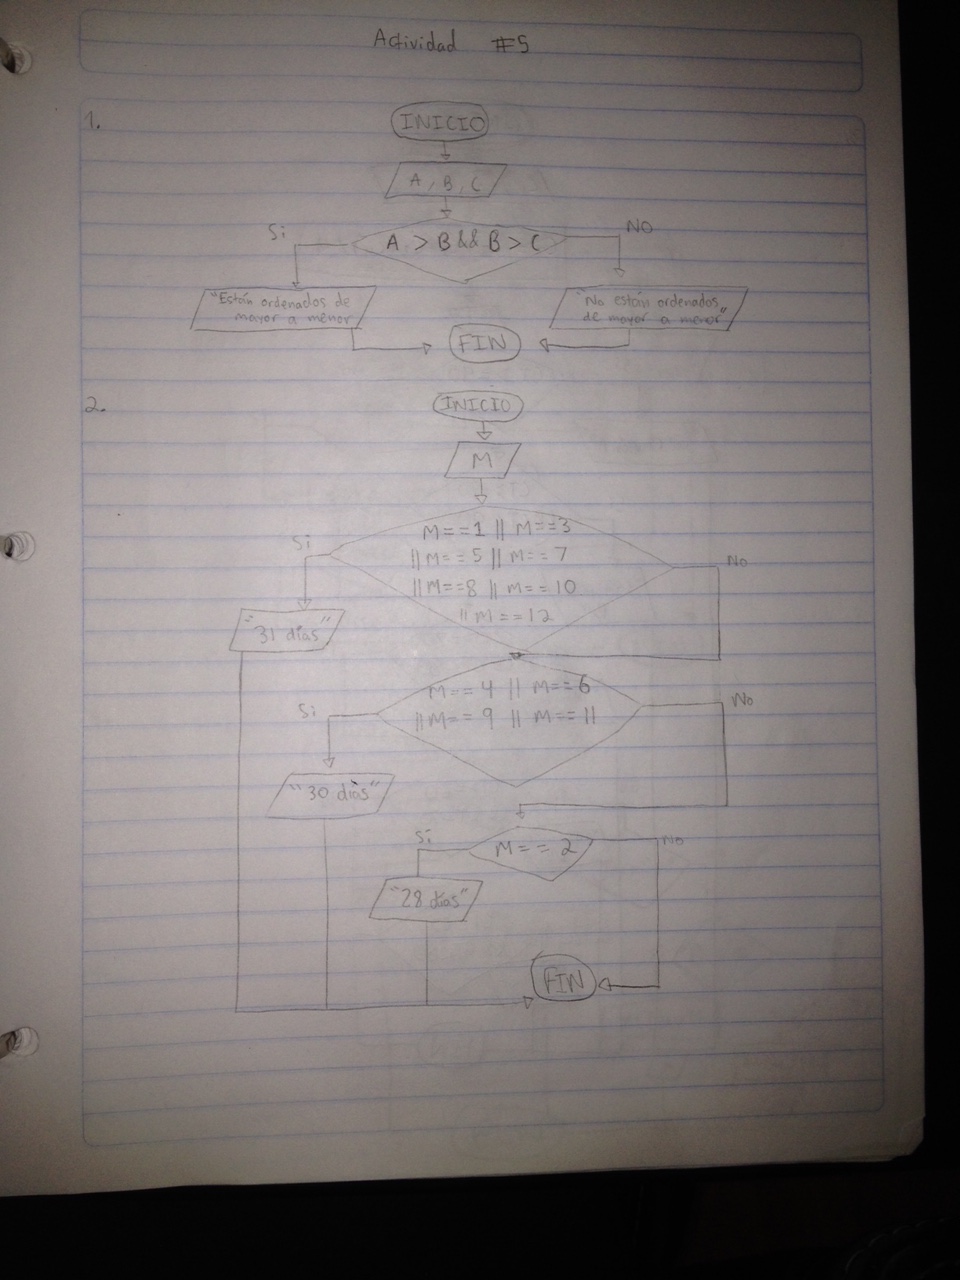 Actividad #5
1.
INICIO
A, B, C
Si
A > B && B > C
NO
"Están ordenados de
mayor a menor
"No están ordenados
de mayor a menor"
FIN
2.
INICIO
M
M==1 || M==3
|| M==5 || M==7
|| M==8 || M==10
|| M==12
Si
No
"31 días"
M==4 || M==6
|| M==9 || M==11
Si
No
"30 días"
M==2
Si
No
"28 días"
FIN